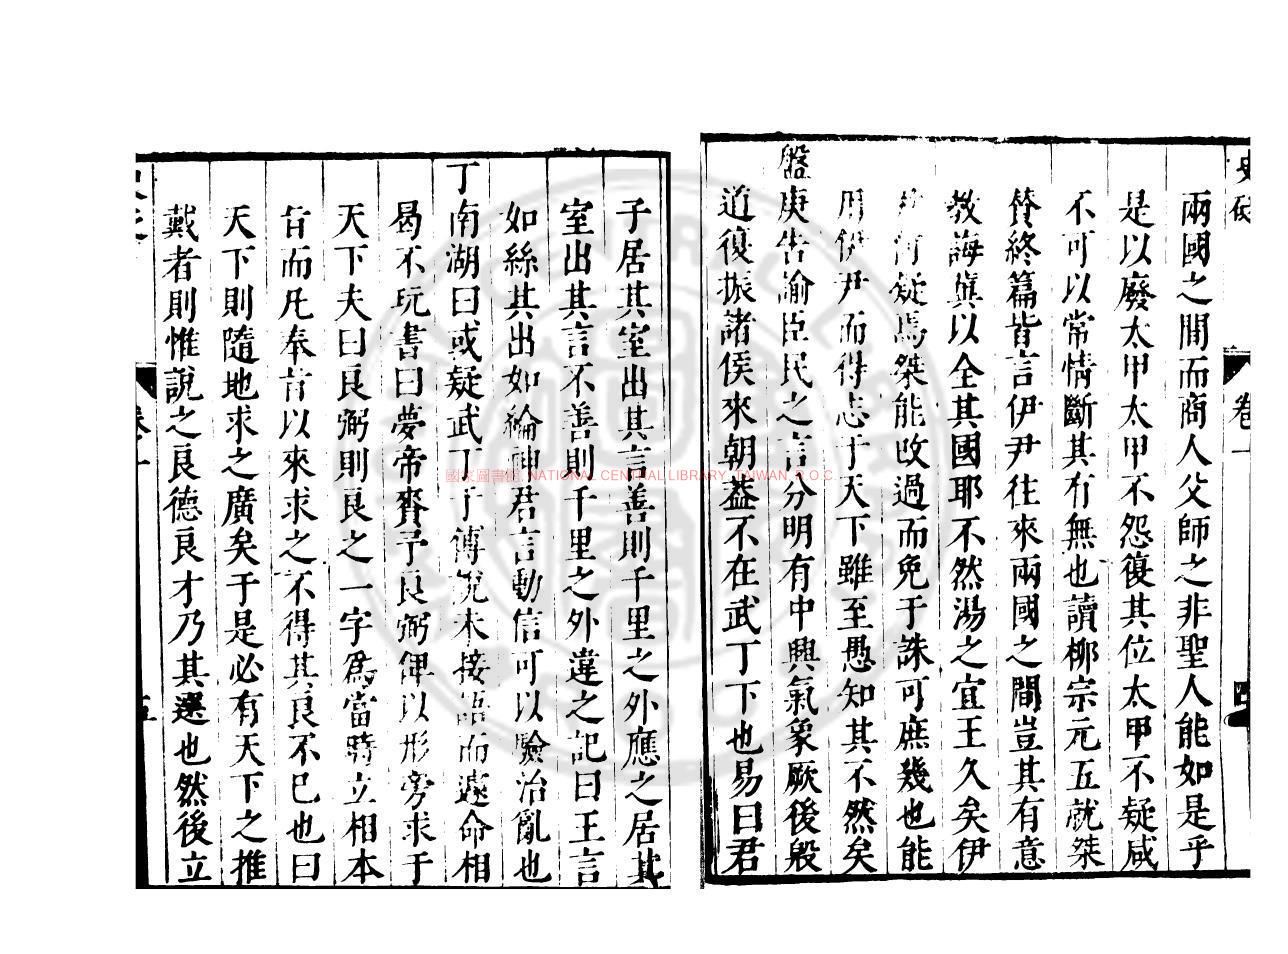 兩國之間而商人父師之非聖人能如是乎
是以廢太甲太甲不怨復其位太甲不疑咸
不可以常情斷其有無也讀柳宗元五就桀
贊終篇皆言伊尹往來兩國之間豈其有意
教誨桀以全其國耶不然湯之宜王久矣伊
何疑焉桀能改過而免于誅可庶幾也能
用伊尹而得志于天下雖至愚知其不然矣
盤庚告諭臣民之言分明有中興氣象厥後殷
道復振諸侯來朝葢不在武丁下也易曰君
卷一
四
子居其室出其言善則千里之外應之居其
室出其言不善則千里之外違之記曰王言
如絲其出如綸神君言動信可以驗治亂也
丁南湖曰或疑武丁于傅說未接語而遽命相
曷不玩書曰夢帝賚予良弼俾以形旁求于
天下夫曰良弼則良之一字爲當時立相本
旨而凡奉旨以來求之不得其良不已也曰
天下則隨地求之廣矣于是必有天下之推
戴者則惟說之良德良才乃其選也然後立
五
國家圖書館 NATIONAL CENTRAL LIBRARY, TAIWAN, R.O.C.